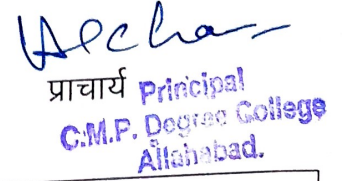 प्राचार्य Principal
C.M.P. Degree College
Allahabad.